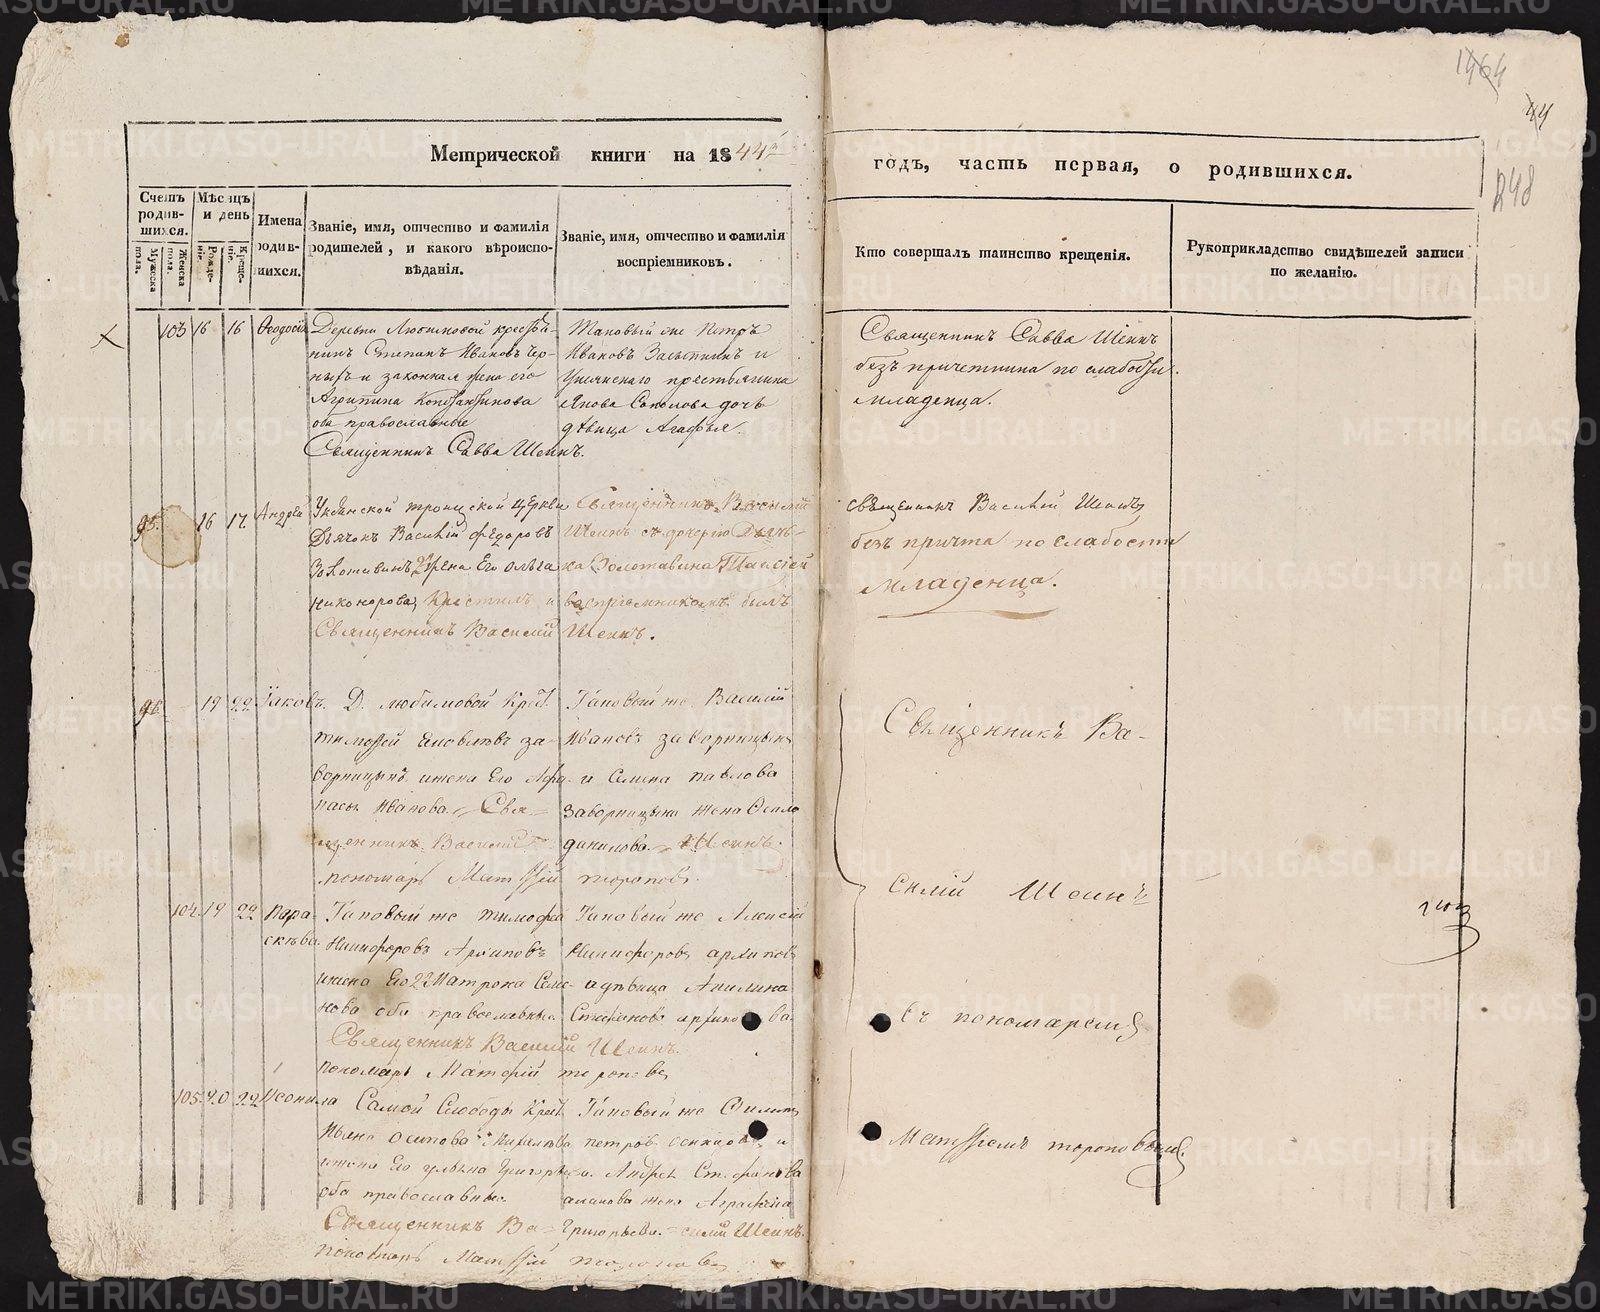 1464
44
248
Метрической книги на 1844й
годъ, часть первая, о родившихся.
Счетъ родившихся.
Мѣсяцъ и день
Имена родившихся.
Званіе, имя, отчество и фамилія родителей, и какого вѣроисповѣданія.
Званіе, имя, отчество и фамилія воспріемниковъ.
Мужеска пола.
Женска пола.
Рожденіе.
Крещеніе.
Кто совершалъ таинство крещенія.
Рукоприкладство свидѣтелей записи по желанію.
103 16 16 Ѳеодосія
Деревни Любимовой крестья-
нинъ Степанъ Ивановъ Чер-
ныхъ и законная жена его
Агрипина Константинова
оба православные
Священникъ Савва Шеинъ.
Таковый же Петръ
Ивановъ Засыпкинъ и
крестьянина
Якова Соколова дочь
дѣвица Агафья.
Священникъ Савва Шеинъ
безъ причетника по слабости
младенца.
95. 16 17. Андрей
троицкой церкви
Дьячокъ Василій Федоровъ
Золотавинъ жена Его Ольга
Никонорова, Крестилъ и
Священникъ Василій
Священникъ Василій
Шеинъ съ дочерью Дьяч-
ка Золотавина Таисіей
воспріемникомъ былъ
Шеинъ.
священникъ Василій Шеинъ
безъ причта по слабости
младенца.
96. 19 22. Іаковъ.
Д. любимовой Крес.
тимоѳей Яковлевъ за-
ворницынъ ижена Его Афа-
насья Иванова. Свя-
щенникъ Василій
пономарь Матѳѣй
Таковый же Василій
Ивановъ заворницынъ
и Семена павлова
заворницына жена
данилова. Шеинъ.
тороповъ.
Священникъ Ва-
силій Шеинъ
съ пономаремъ
Матѳѣемъ тороповымъ
104. 19 22 Пара-
скева.
Таковый же тимофей
Никифоровъ Архиповъ
ижена Его Матрона Семе-
нова оба православные.
Священникъ Василій Шеинъ.
пономарь Матѳей тороповъ
Таковый же Алексій
Никифоровъ архиповъ
адѣвица Акилина
Стефанова архипова.
105. 20 22 Неонила
Самой Слободы Крес.
Ивано осипова
ижена Его ульяна Григорьева
оба православные.
Священникъ Ва-
пономарь Матѳѣй
Таковый же Филипъ
петровъ и
Андрея Стефанова
жена Аграфена
Григорьева. силій Шеинъ.
тороповъ